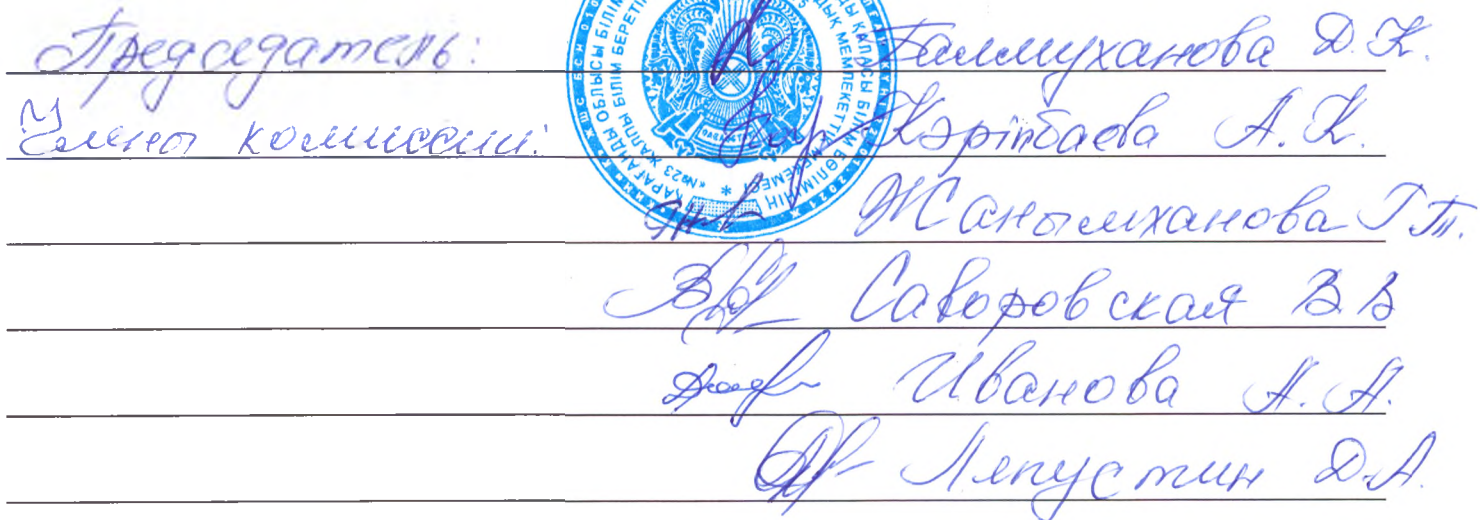 Председатель: Балмуханова Д.К.
Члены комиссии: Кәріпбаева А.К.
Жанымханова Г.Т.
Саворовская В.В
Иванова А.А.
Ляпустин Д.А.
ҚАРАҒАНДЫ ОБЛЫСЫ БІЛІМ
«№23 ЖАЛПЫ БІЛІМ БЕРЕТІН
ҚАЛАСЫ БІЛІМ БӨЛІМІНІҢ
МЕМЛЕКЕТТІК МЕКЕМЕСІ